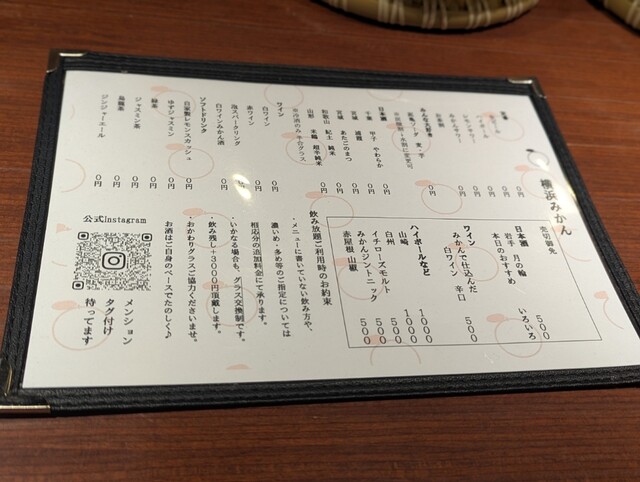 横浜みかん
みんな大好き
0円
日本酒
0円
千葉 甲子 やわらか
0円
宮城 浦霞
0円
宮城 あたごのまつ
0円
和歌山 紀土 純米
0円
山形 米鶴 超辛純米
0円
ワイン
白ワイン
0円
赤ワイン
0円
泡スパークリング
0円
白ワインみかん酒
0円
ソフトドリンク
自家製レモンスカッシュ
0円
ゆずジャスミン
0円
緑茶
0円
ジャスミン茶
0円
烏龍茶
0円
ジンジャーエール
0円
売切御免
日本酒
岩手 月の輪 500
本日のおすすめ いろいろ
ワイン
みかんで仕込んだ 辛口
白ワイン 500
ハイボールなど
山崎 1000
白州 1000
イチローズモルト 500
みかんジントニック 500
赤屋根 山椒 500
飲み放題ご利用時のお約束
・メニューに書いていない飲み方や、
濃いめ・多め等のご指定については
相応分の追加料金にて承ります。
・いかなる場合も、グラス交換制です。
・飲み残し+3000円頂戴します。
・おかわりグラスご協力くださいませ。
お酒はご自身のペースでたのしく♪
公式Instagram
メンション
タグ付け
待ってます